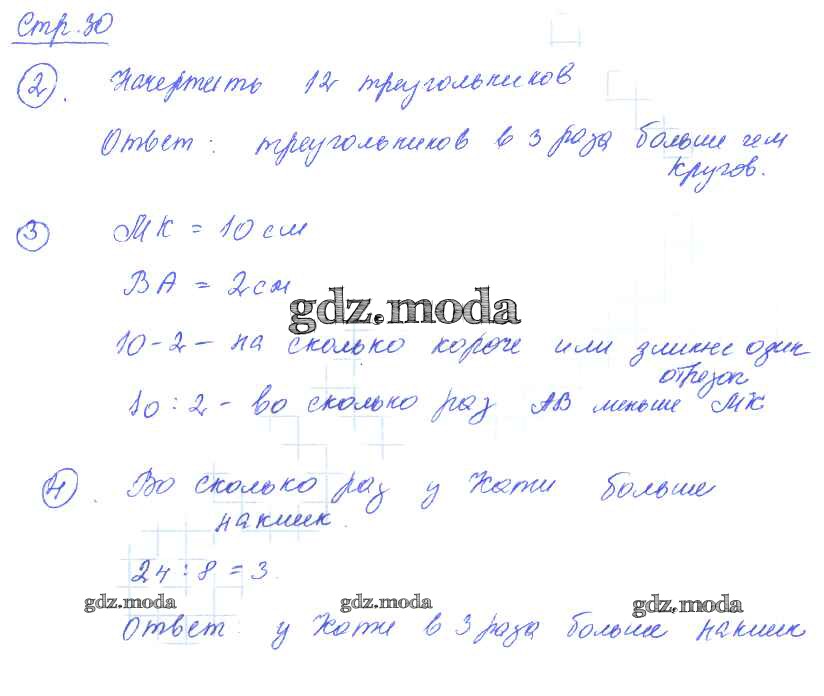 Стр. 30
2. Начертить 12 треугольников
Ответ: треугольников в 3 раза больше чем
кругов.
3 МК = 10 см
ВА = 2 см
gdz.moda
10 - 2 - на сколько короче или длиннее один
отрезок
10 : 2 - во сколько раз АВ меньше МК
4. Во сколько раз у Кати больше
наклеек.
24 : 8 = 3
gdz.moda gdz.moda gdz.moda
Ответ: у Кати в 3 раза больше наклеек